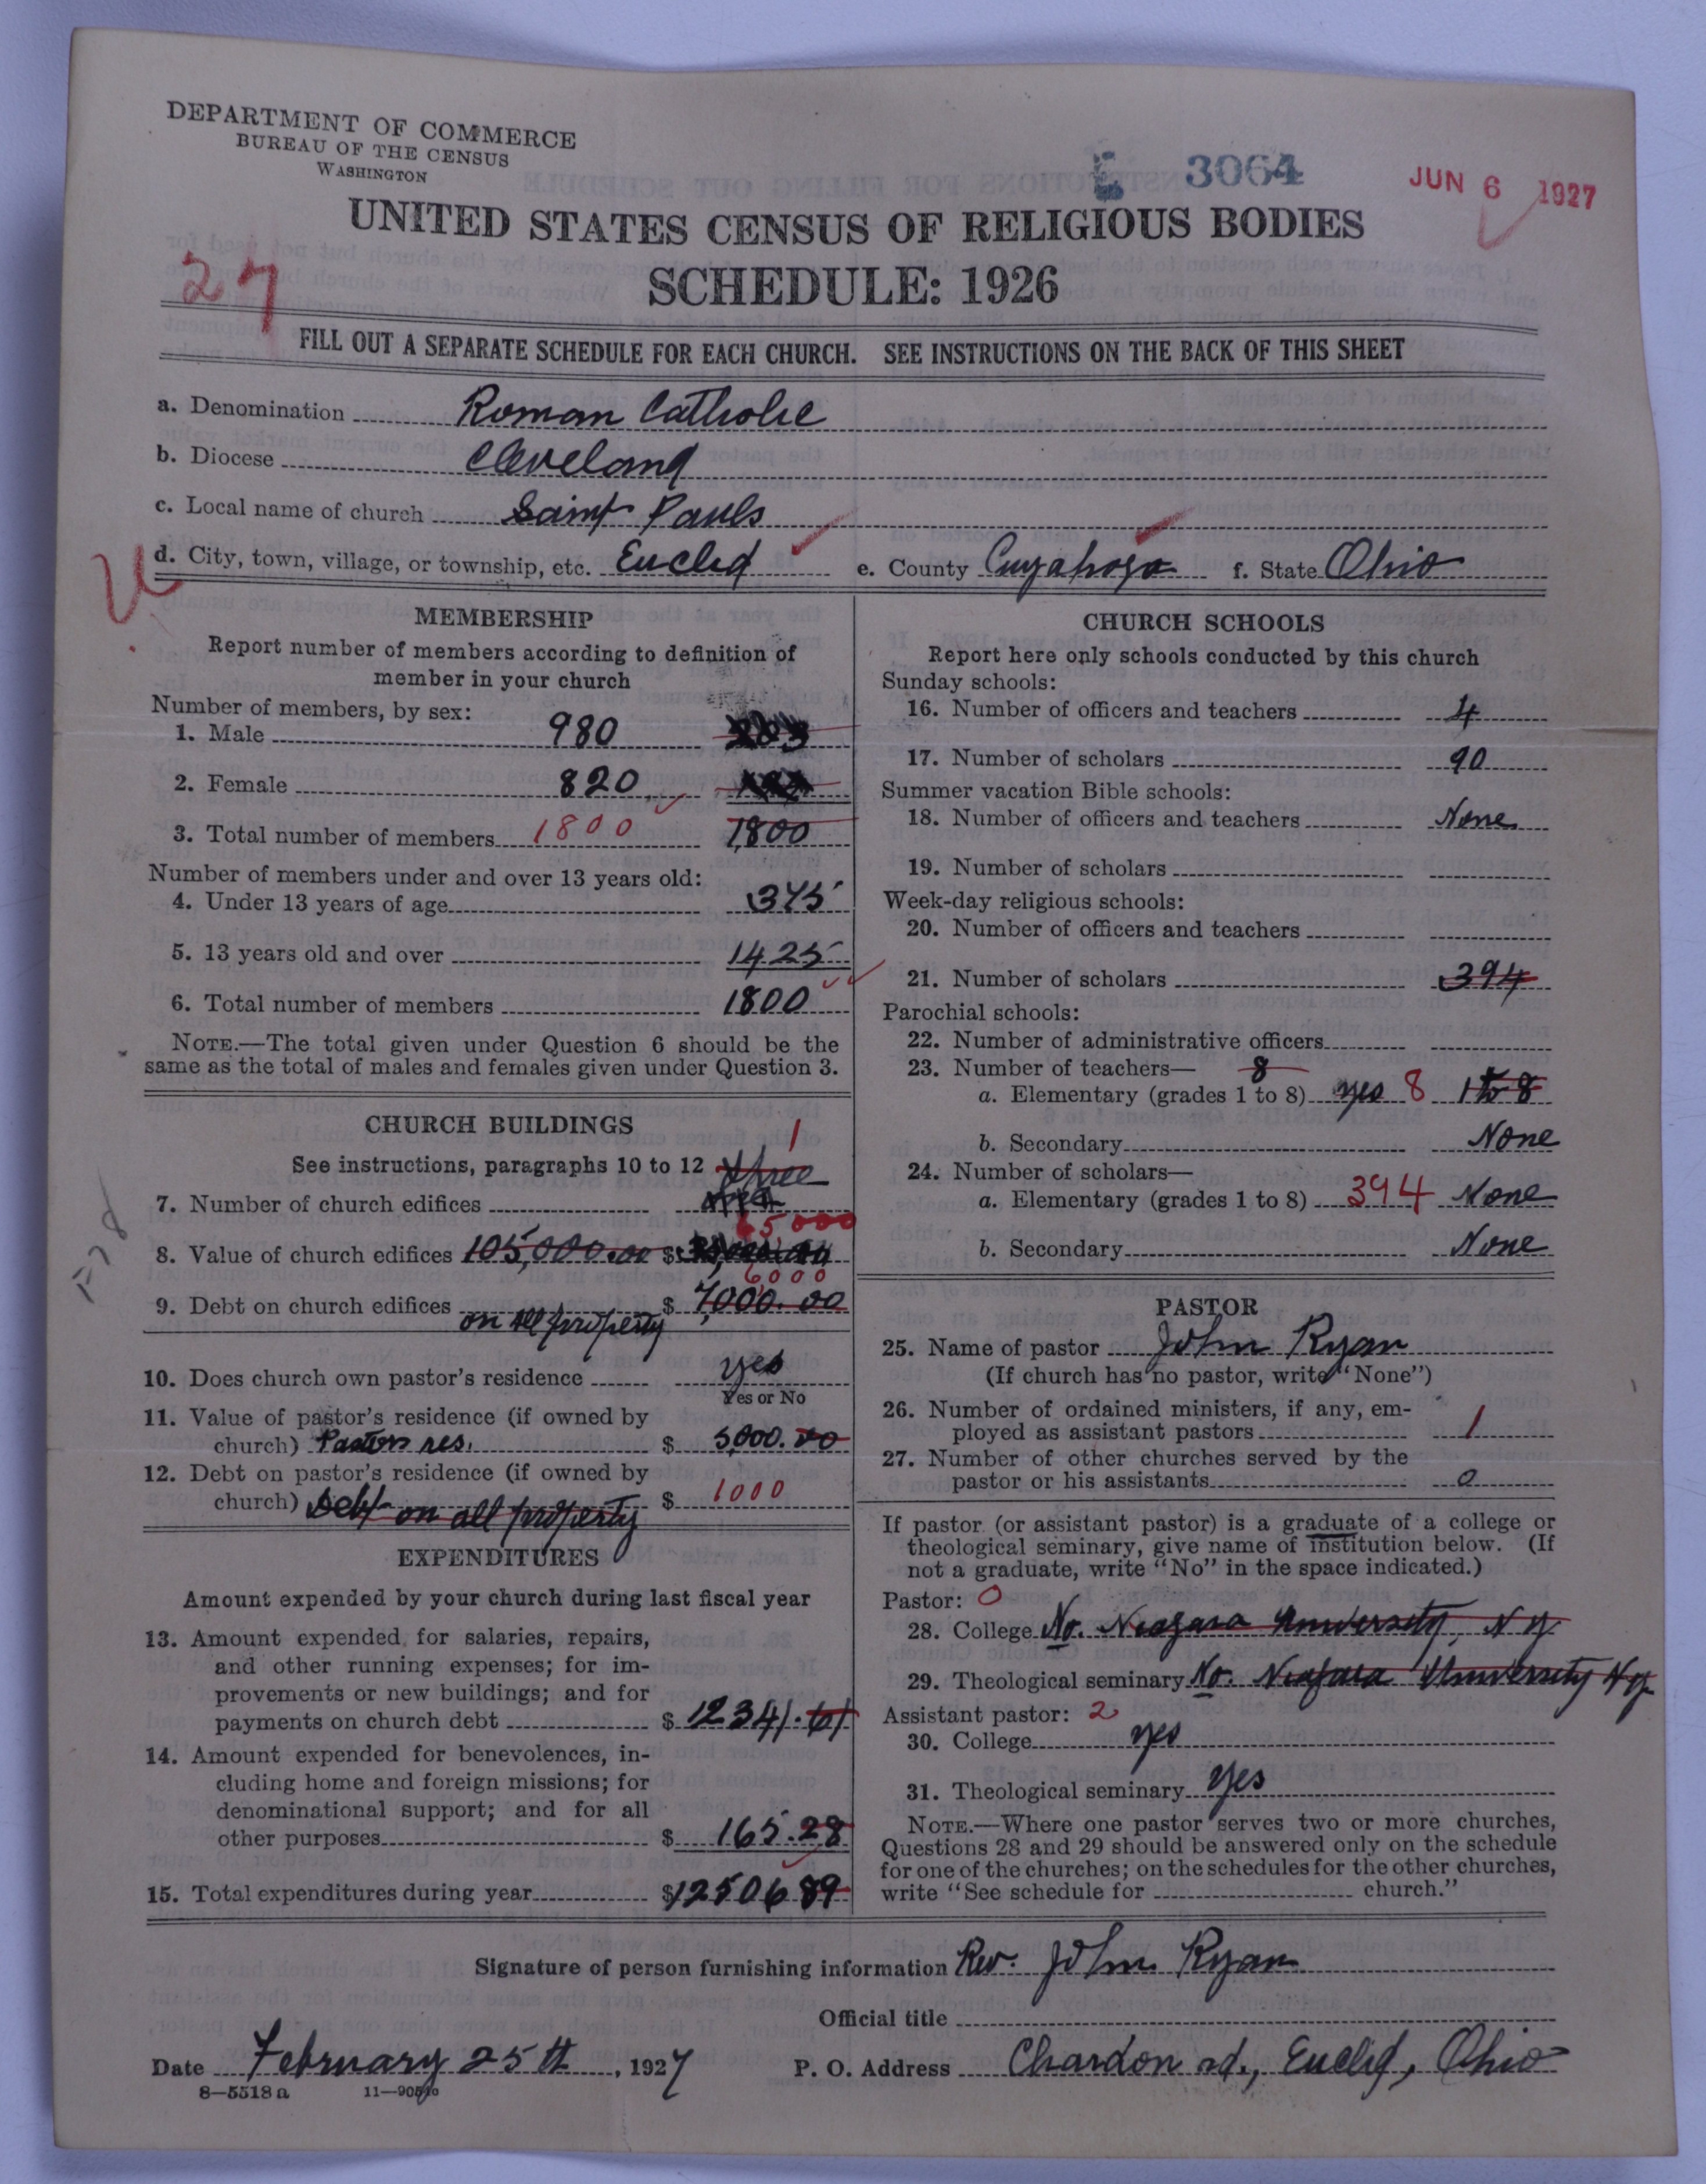 DEPARTMENT OF COMMERCE
BUREAU OF THE CENSUS
WASHINGTON
3064
JUN 6 1927
UNITED STATES CENSUS OF RELIGIOUS BODIES
SCHEDULE: 1926
27
FILL OUT A SEPARATE SCHEDULE FOR EACH CHURCH. SEE INSTRUCTIONS ON THE BACK OF THIS SHEET
a. Denomination Roman Catholic
b. Diocese Cleveland
c. Local name of church Saint Pauls
d. City, town, village, or township, etc. Euclid e. County Cuyahoga f. State Ohio
MEMBERSHIP
Report number of members according to definition of
member in your church
Number of members, by sex:
1. Male 980
2. Female 820
3. Total number of members 1800 1,800
Number of members under and over 13 years old:
4. Under 13 years of age 375
5. 13 years old and over 1425
6. Total number of members 1800
NOTE.—The total given under Question 6 should be the
same as the total of males and females given under Question 3.
CHURCH BUILDINGS
1
See instructions, paragraphs 10 to 12 three
7. Number of church edifices
65000
8. Value of church edifices 105,000.00 $
6000
9. Debt on church edifices $ 7,000.00
on all property
10. Does church own pastor's residence yes
Yes or No
11. Value of pastor's residence (if owned by
church) Pastors res. $ 5000.00
12. Debt on pastor's residence (if owned by
church) Debt on all property $ 1000
EXPENDITURES
Amount expended by your church during last fiscal year
13. Amount expended for salaries, repairs,
and other running expenses; for im-
provements or new buildings; and for
payments on church debt $ 12341.61
14. Amount expended for benevolences, in-
cluding home and foreign missions; for
denominational support; and for all
other purposes $ 165.28
15. Total expenditures during year $12506 89
CHURCH SCHOOLS
Report here only schools conducted by this church
Sunday schools:
16. Number of officers and teachers 4
17. Number of scholars 90
Summer vacation Bible schools:
18. Number of officers and teachers None
19. Number of scholars
Week-day religious schools:
20. Number of officers and teachers
21. Number of scholars 394
Parochial schools:
22. Number of administrative officers
23. Number of teachers— 8
a. Elementary (grades 1 to 8) yes 8 1 to 8
b. Secondary None
24. Number of scholars—
a. Elementary (grades 1 to 8) 394 None
b. Secondary None
PASTOR
25. Name of pastor John Ryan
(If church has no pastor, write "None")
26. Number of ordained ministers, if any, em-
ployed as assistant pastors 1
27. Number of other churches served by the
pastor or his assistants 0
If pastor (or assistant pastor) is a graduate of a college or
theological seminary, give name of institution below. (If
not a graduate, write "No" in the space indicated.)
Pastor: 0
28. College No. Niagara University, N.Y.
29. Theological seminary No. Niagara University N.Y.
Assistant pastor: 2
30. College yes
31. Theological seminary yes
NOTE.—Where one pastor serves two or more churches,
Questions 28 and 29 should be answered only on the schedule
for one of the churches; on the schedules for the other churches,
write "See schedule for church."
Signature of person furnishing information Rev. John Ryan
Official title
Date February 25th, 1927 P. O. Address Chardon rd., Euclid, Ohio
8—5518 a 11—90510